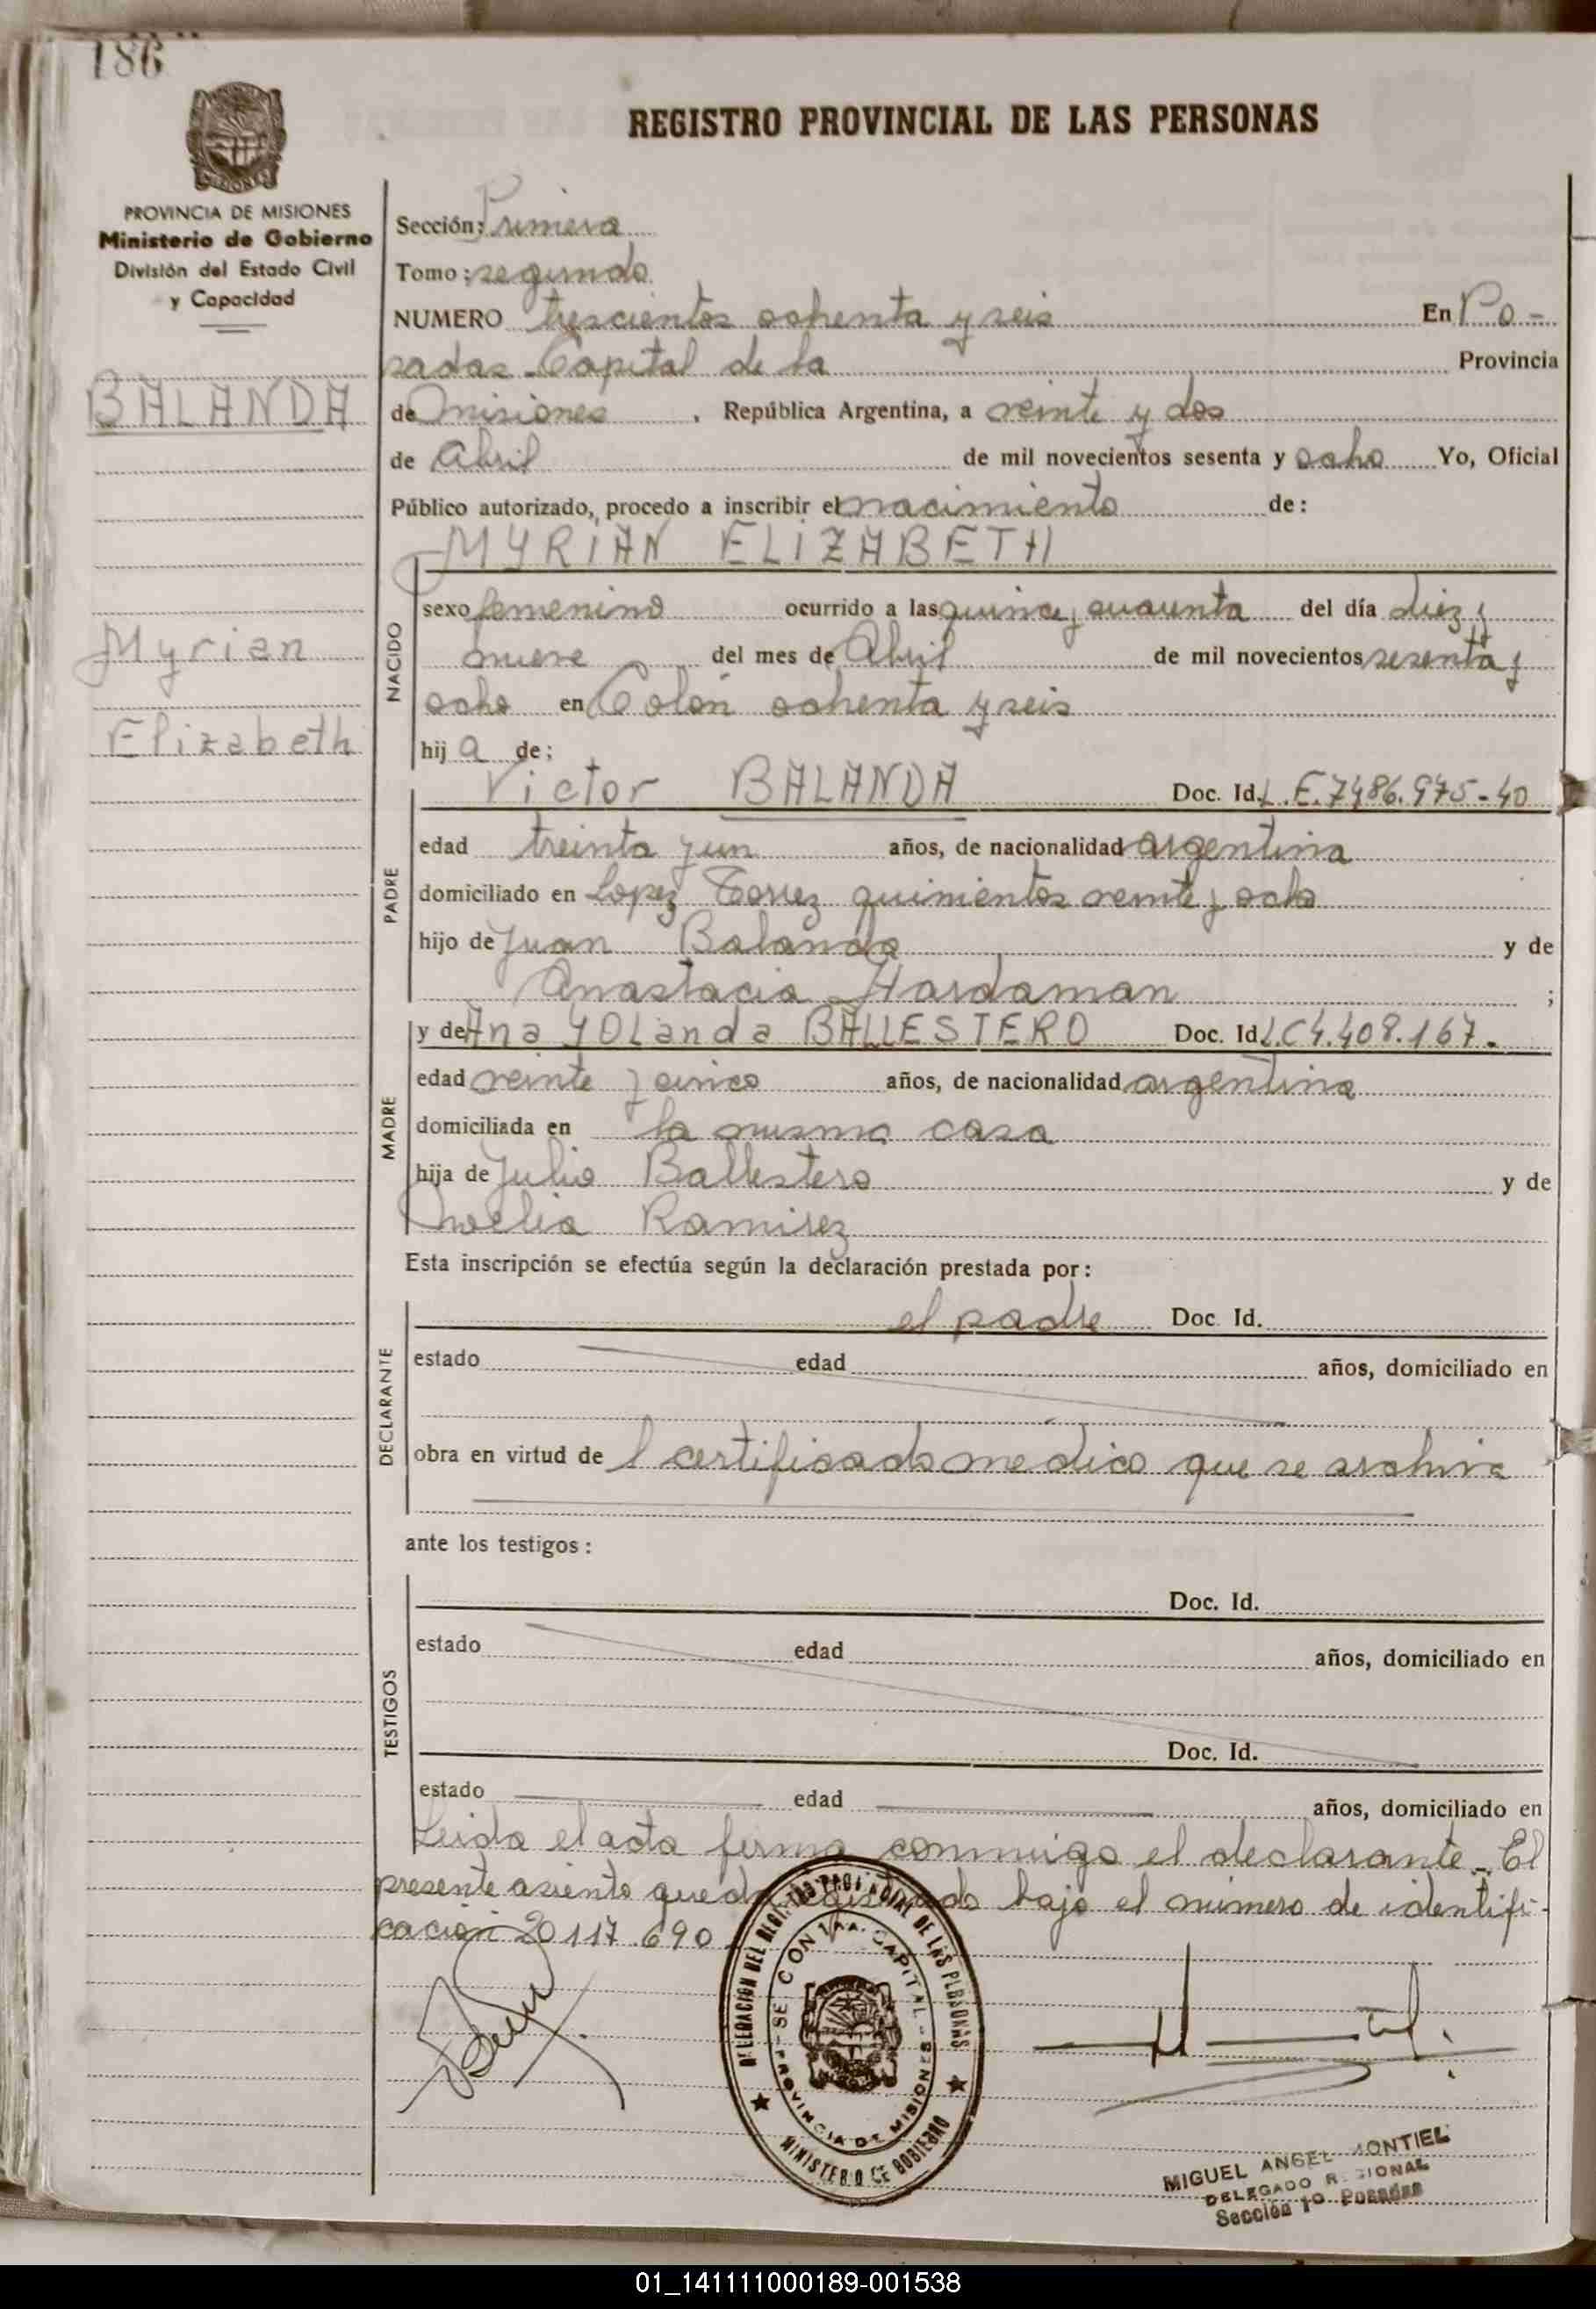 186
REGISTRO PROVINCIAL DE LAS PERSONAS
PROVINCIA DE MISIONES
Ministerio de Gobierno
División del Estado Civil
y Capacidad
BALANDA
Myrian
Elizabeth
Sección: Primera
Tomo: segundo
NUMERO trescientos ochenta y seis En Po-
sadas Capital de la Provincia
de Misiones, República Argentina, a veinte y dos
de Abril de mil novecientos sesenta y ocho Yo, Oficial
Público autorizado, procedo a inscribir el nacimiento de:
MYRIAN ELIZABETH
NACIDO
sexo femenino ocurrido a las quince y cuarenta del día diez y
nueve del mes de Abril de mil novecientos sesenta y
ocho en Colón ochenta y seis
hij a de;
PADRE
Victor BALANDA Doc. Id. L.E. 7486.975-40
edad treinta y un años, de nacionalidad argentina
domiciliado en Lopez Torrez quinientos veinte y ocho
hijo de Juan Balanda y de
Anastacia Hardaman ;
MADRE
y de Ana YOLanda BALLESTERO Doc. Id L.C 4.408.167.
edad veinte y cinco años, de nacionalidad argentina
domiciliada en la misma casa
hija de Julio Ballestero y de
Noelia Ramirez
Esta inscripción se efectúa según la declaración prestada por:
DECLARANTE
el padre Doc Id.
estado edad años, domiciliado en
obra en virtud de l certificado medico que se archiva
ante los testigos:
TESTIGOS
Doc. Id.
estado edad años, domiciliado en
Doc. Id.
estado edad años, domiciliado en
Leida el acta firma conmigo el declarante. El
presente asiento queda registrado bajo el número de identifi-
cación 20117.690
DELEGACION DEL REGISTRO PROVINCIAL DE LAS PERSONAS
CAPITAL
PROVINCIA DE MISIONES
MINISTERIO DE GOBIERNO
MIGUEL ANGEL MONTIEL
DELEGADO REGIONAL
Sección 1º Posadas
01_141111000189-001538